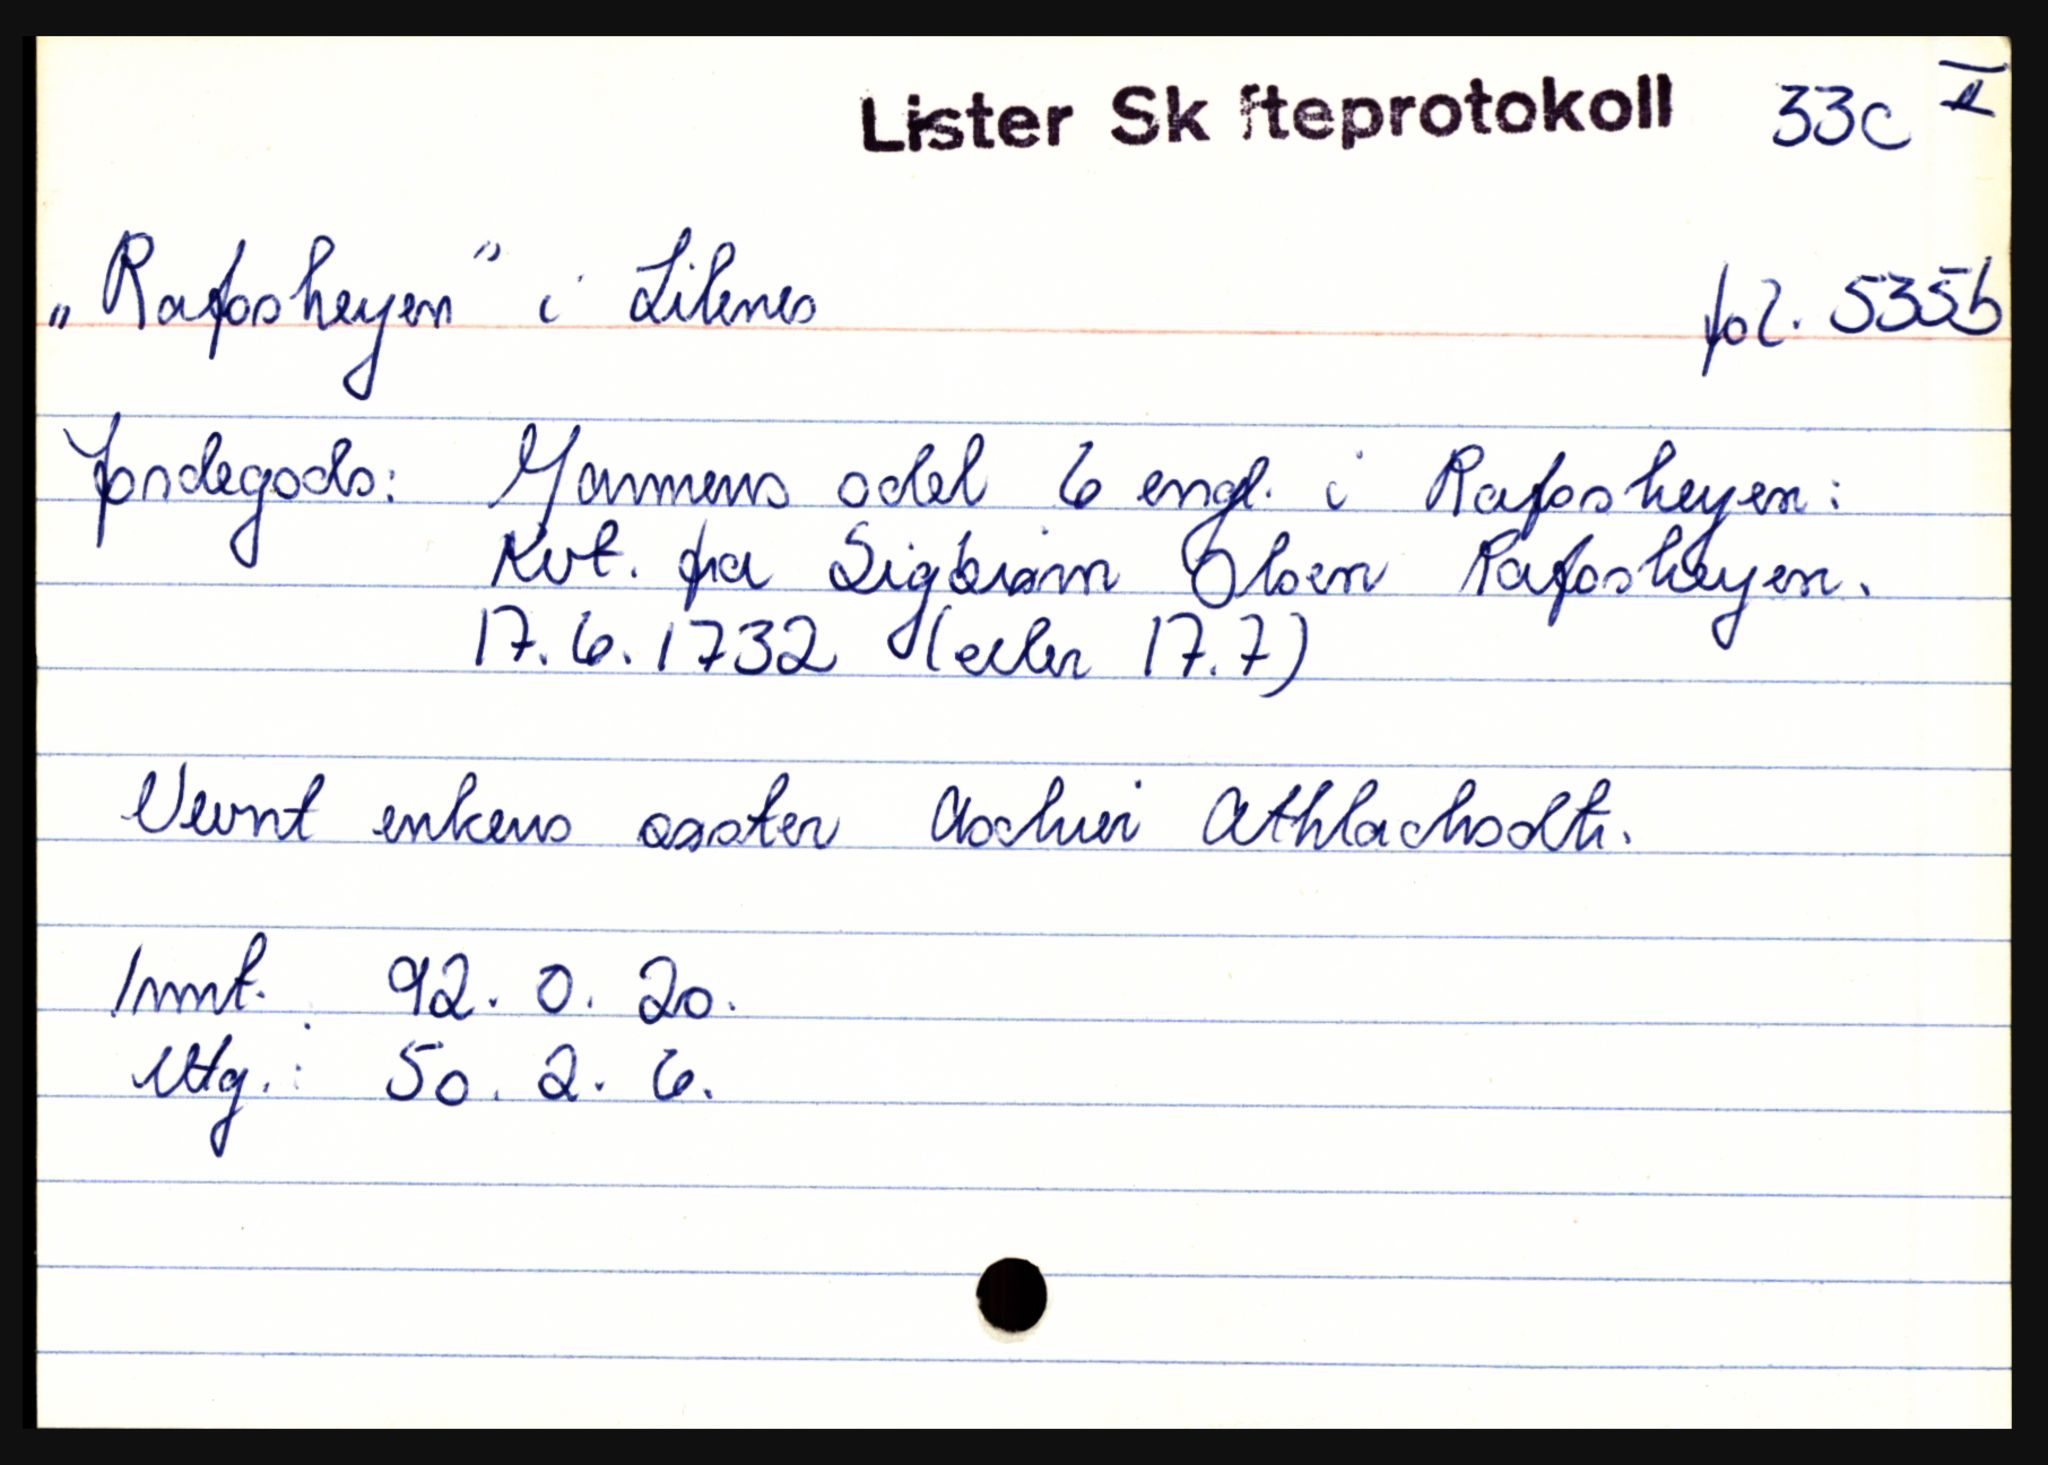 Lister Sk fteprotokoll 33c II
„Rafosheyen" i Lilenes fol. 535b
Jordegods: Mannens odel 6 engl. i Rafosheyen:
Kvt. fra Sigbiørn Olsen Rafosheyen.
17.6.1732 (eller 17.7)
Nevnt enkens søster Aschier Athlachsdtr.
Innt. 92. 0. 20.
Utg.: 50. 2. 6.